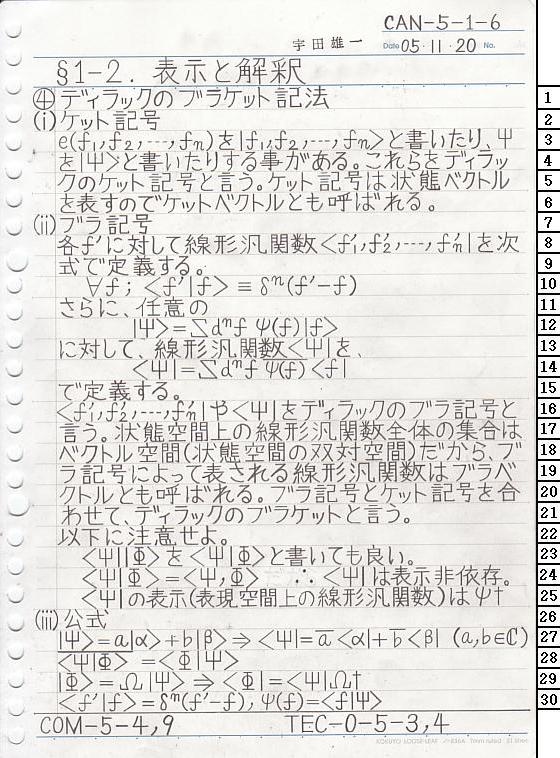 CAN-5-1-6
宇田雄一 Date 05・11・20 No.
§1-2. 表示と解釈
④ディラックのブラケット記法
(i)ケット記号
e(f₁,f₂,…,fₙ)を|f₁,f₂,…,fₙ>と書いたり、Ψ
を|Ψ>と書いたりする事がある。これらをディラッ
クのケット記号と言う。ケット記号は状態ベクトル
を表すのでケットベクトルとも呼ばれる。
(ii)ブラ記号
各f′に対して線形汎関数<f′₁,f′₂,…,f′ₙ|を次
式で定義する。
∀f; <f′|f> ≡ δⁿ(f′-f)
さらに、任意の
|Ψ>=∑dⁿf ψ(f)|f>
に対して、線形汎関数<Ψ|を、
<Ψ|=∑dⁿf ψ̄(f)<f|
で定義する。
<f′₁,f′₂,…,f′ₙ|や<Ψ|をディラックのブラ記号と
言う。状態空間上の線形汎関数全体の集合は
ベクトル空間(状態空間の双対空間)だから、ブ
ラ記号によって表される線形汎関数はブラベ
クトルとも呼ばれる。ブラ記号とケット記号を合
わせて、ディラックのブラケットと言う。
以下に注意せよ。
<Ψ||Φ>を<Ψ|Φ>と書いても良い。
<Ψ|Φ>=<Ψ,Φ> ∴<Ψ|は表示非依存。
<Ψ|の表示(表現空間上の線形汎関数)はψ†
(iii)公式
|Ψ>=a|α>+b|β>⇒<Ψ|=a̅<α|+b̅<β| (a,b∈ℂ)
<Ψ|Φ>̅=<Φ|Ψ>
|Φ>=Ω|Ψ>⇒<Φ|=<Ψ|Ω†
<f′|f>=δⁿ(f′-f), ψ(f)=<f|Ψ>
COM-5-4,9 TEC-0-5-3,4
KOKUYO LOOSE-LEAF
1
2
3
4
5
6
7
8
9
10
11
12
13
14
15
16
17
18
19
20
21
22
23
24
25
26
27
28
29
30